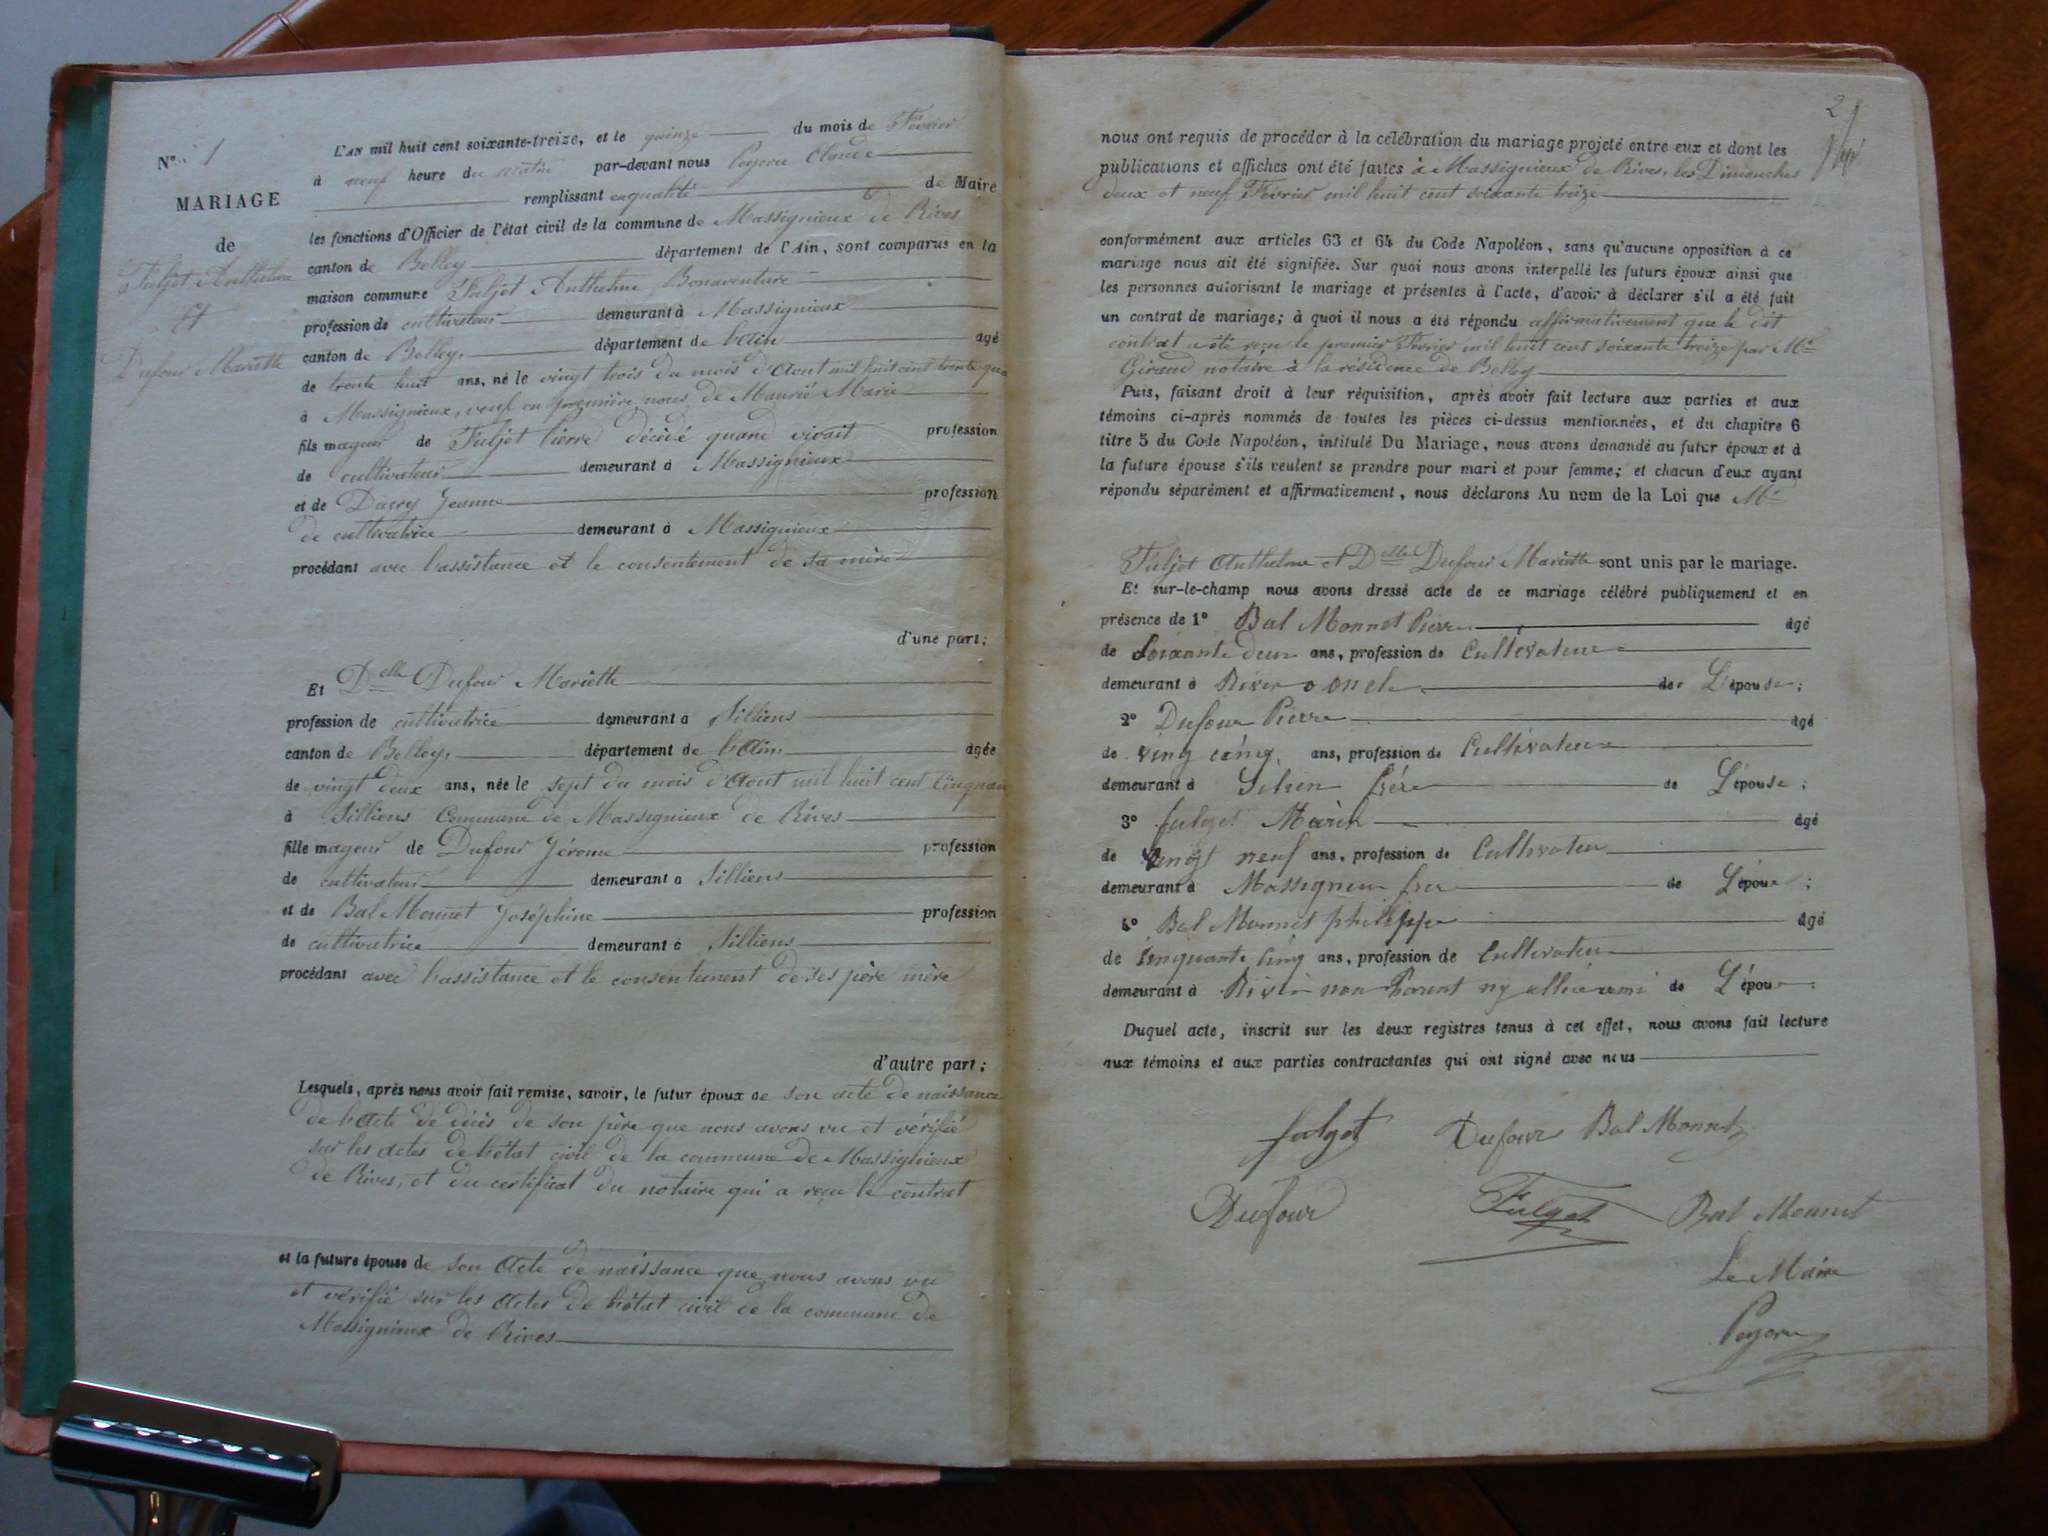 N° 1
MARIAGE
de
Fuljet Anthelme
et
Dufour Mariette
L'AN mil huit cent soixante-treize, et le quinze du mois de Février
à neuf heure du matin par-devant nous Peyron Claude
remplissant en qualité de Maire
les fonctions d'Officier de l'état civil de la commune de Massignieux de Rives
canton de Belley département de l'Ain, sont comparus en la
maison commune Fuljet Anthelme, Bonaventure
profession de cultivateur demeurant à Massignieux
canton de Belley, département de l'Ain agé
de trente huit ans, né le vingt trois du mois d'Aout mil huit cent trente qua
à Massignieux, veuf en première nous de Maurié Marie
fils mageur de Fuljet Pierre décédé quand vivait profession
de cultivateur demeurant à Massignieux
et de Jeanne profession
de cultivatrice demeurant à Massignieux
procédant avec l'assistance et le consentement de sa mère
d'une part;
Et Delle Dufour Mariette
profession de cultivatrice demeurant à Silliens
canton de Belley, département de l'Ain agée
de vingt deux ans, née le sept du mois d'Aout mil huit cent cinquan
à Silliens Commune de Massignieux de Rives
fille mageur de Dufour Jérome profession
de cultivateur demeurant à Silliens
et de Bal Monnet Joséphine profession
de cultivatrice demeurant à Silliens
procédant avec l'assistance et le consentement de ses père mère
d'autre part;
Lesquels, après nous avoir fait remise, savoir, le futur époux de son acte de naissance
de l'acte de décès de son père que nous avons vu et vérifié
sur les actes de l'état civil de la commune de Massignieux
de Rives, et du certificat du notaire qui a reçu le contrat
et la future épouse de son Acte de naissance que nous avons vu
et vérifié sur les Actes de l'état civil de la commune de
Massignieux de Rives
2
nous ont requis de procéder à la célébration du mariage projeté entre eux et dont les
publications et affiches ont été faites à Massignieux de Rives, les Dimanches
deux et neuf Février mil huit cent soixante treize
conformément aux articles 63 et 64 du Code Napoléon, sans qu'aucune opposition à ce
mariage nous ait été signifiée. Sur quoi nous avons interpellé les futurs époux ainsi que
les personnes autorisant le mariage et présentes à l'acte, d'avoir à déclarer s'il a été fait
un contrat de mariage; à quoi il nous a été répondu affirmativement que le dit
contrat a été reçu le premier Février mil huit cent soixante treize par Me
Giraud notaire à la résidence de Belley
Puis, faisant droit à leur réquisition, après avoir fait lecture aux parties et aux
témoins ci-après nommés de toutes les pièces ci-dessus mentionnées, et du chapitre 6
titre 5 du Code Napoléon, intitulé Du Mariage, nous avons demandé au futur époux et à
la future épouse s'ils veulent se prendre pour mari et pour femme; et chacun d'eux ayant
répondu séparément et affirmativement, nous déclarons Au nom de la Loi que Mr
Fuljet Anthelme et Delle Dufour Mariette sont unis par le mariage.
Et sur-le-champ nous avons dressé acte de ce mariage célébré publiquement et en
présence de 1° Bal Monnet Pierre agé
de Soixante deux ans, profession de Cultivateur
demeurant à Rives oncle de L'épouse;
2° Dufour Pierre agé
de ving cinq ans, profession de Cultivateur
demeurant à Silien frére de L'épouse;
3° fulget Marin agé
de vingt neuf ans, profession de Cultivateur
demeurant à Massignieu frer de L'épou;
4° Bal Monnet philippe agé
de Cinquante Cinq ans, profession de Cultivateur
demeurant à Rives non Parent ny allié ami de L'épou;
Duquel acte, inscrit sur les deux registres tenus à cet effet, nous avons fait lecture
aux témoins et aux parties contractantes qui ont signé avec nous
fulget Dufour Bal Monnet
Dufour Fulget Bal Monnet
Le Maire
Peyron